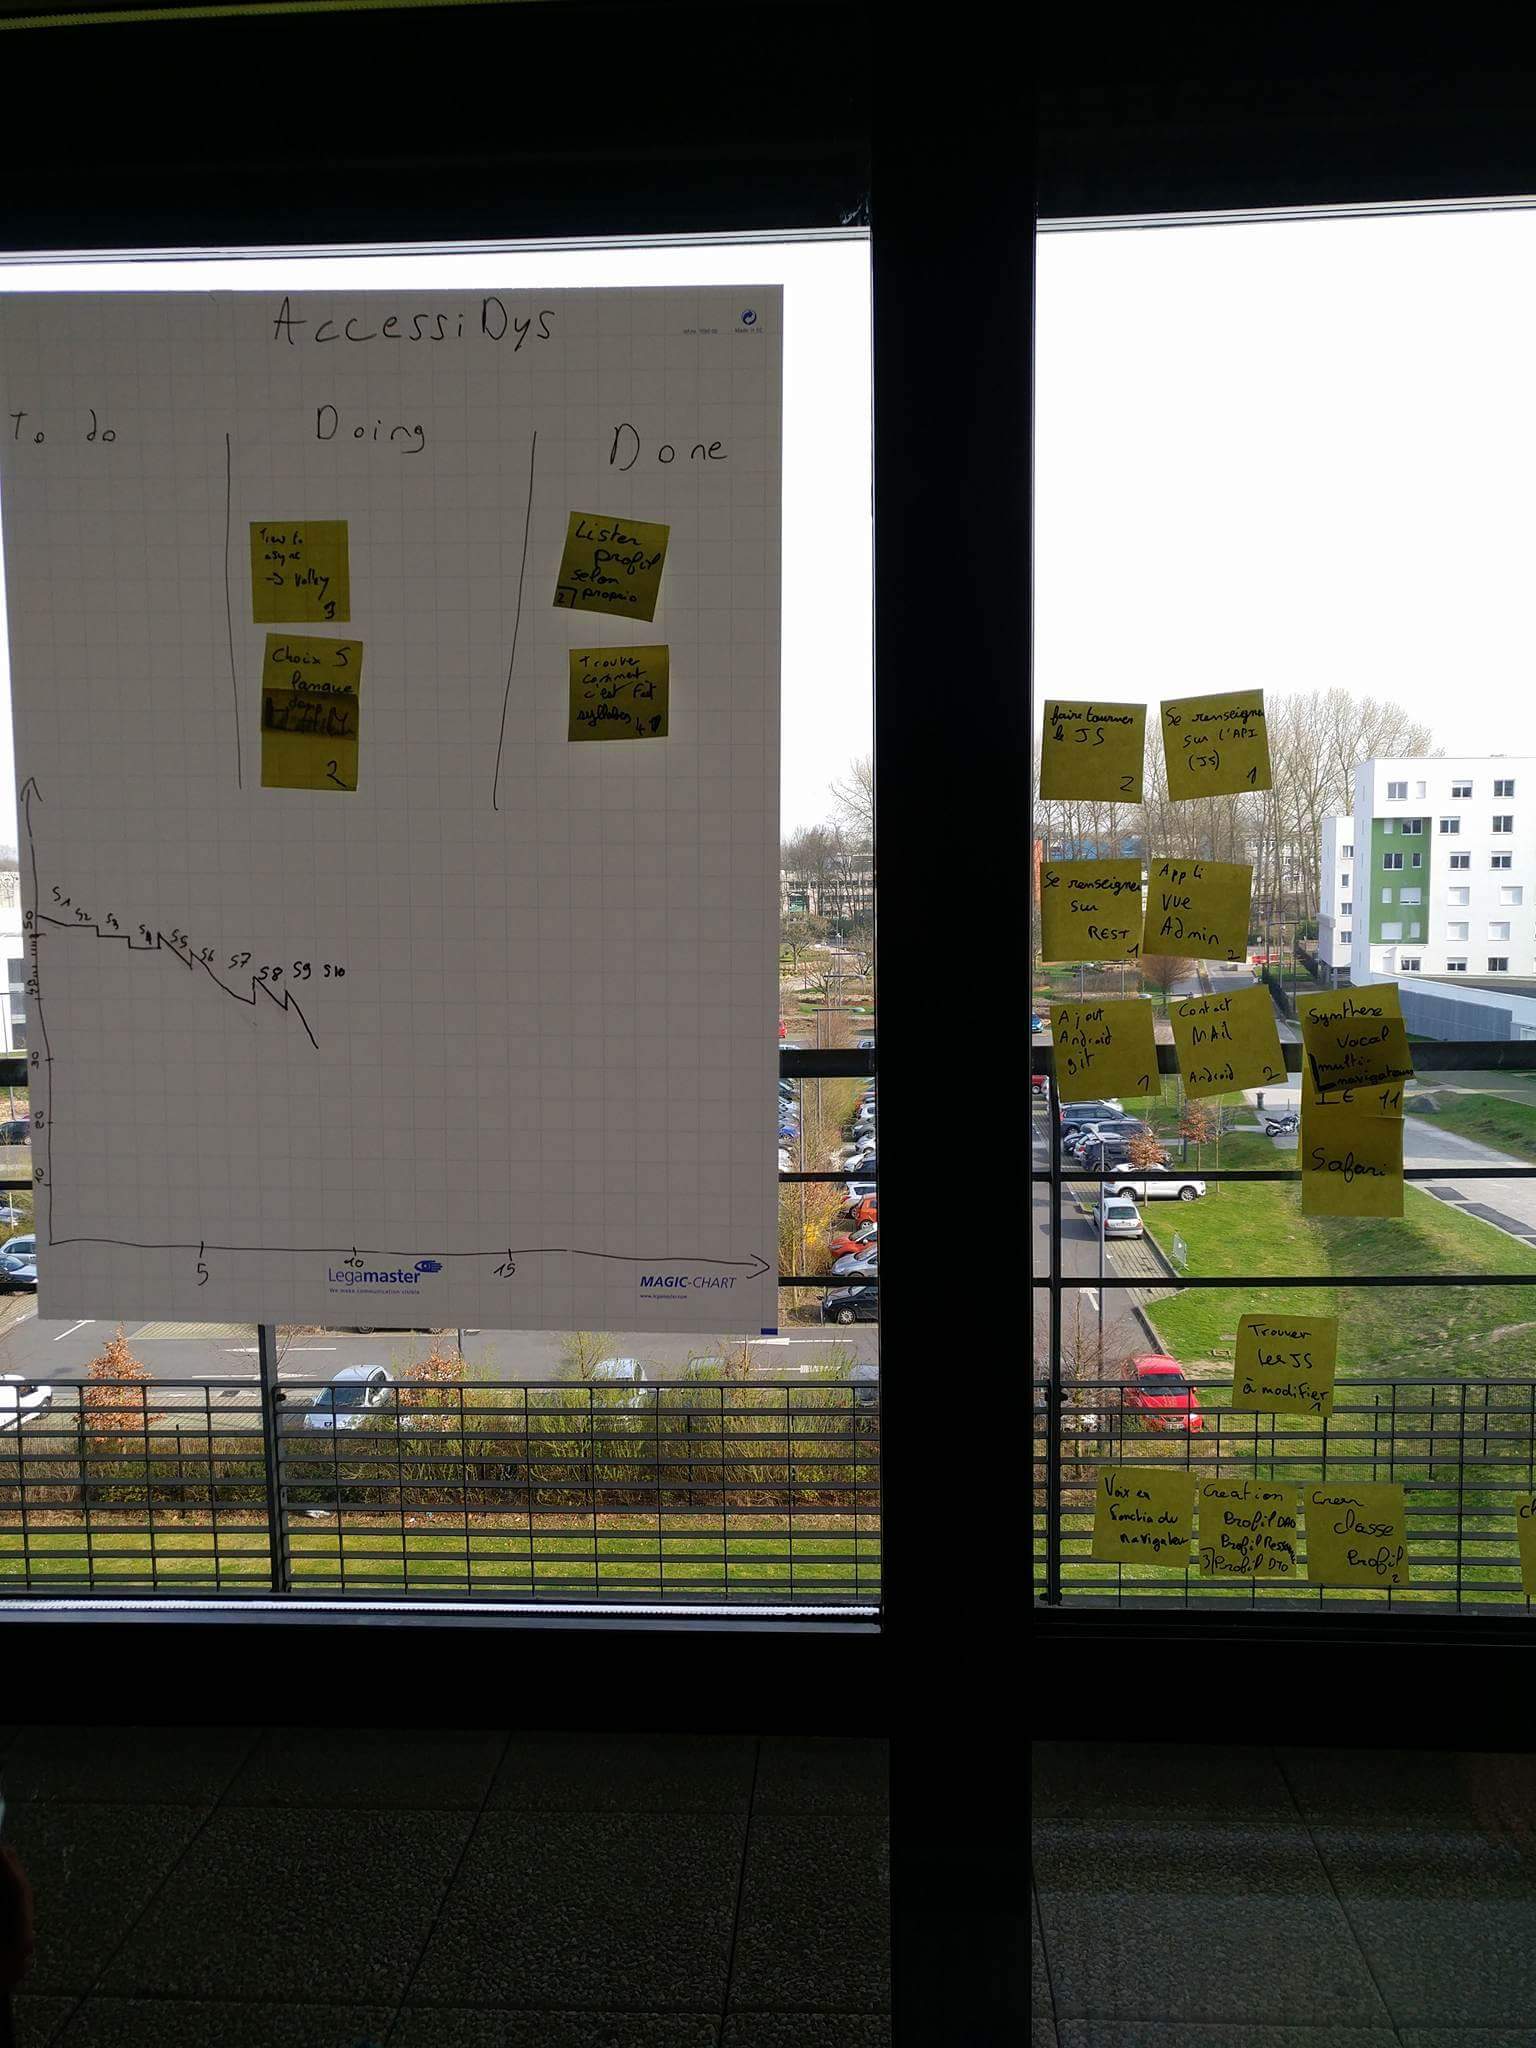 AccessiDys
To do
Doing
Done
async
-> Volley
3
Choix 5
langue
dans
2
Lister
profil
selon
proprio
2
Trouver
comment
c'est fait
syllabes
4
S1
S2
S3
S4
S5
S6
S7
S8
S9
S10
50
40
30
20
10
5
10
15
Legamaster
We make communication visible
MAGIC-CHART
www.legamaster.com
faire tourner
le JS
2
Se renseigner
sur l'API
(JS)
1
Se renseigner
sur
REST
1
Appli
vue
Admin
2
Ajout
Android
git
1
Contact
MAil
Android
2
Synthese
vocal
multi-
navigateurs
IE 11
Safari
Trouver
les JS
à modifier
1
Voix en
fonction du
navigateur
Creation
Profil DAO
Profil Ressource
3 Profil DTO
Creer
classe
Profil
2